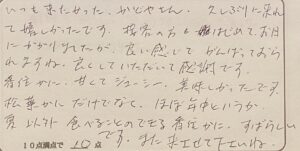 いつも来たかった、かどやさん。久しぶりに来れ
て嬉しかったです。接客の方もはじめてお目
にかかりましたが、良い感じで がんばっておら
れますね。良くしていただいて感謝です。
香住かに、甘くてジューシー、美味しかったです。
松葉かにだけでなく、ほぼ年中というか
夏以外食べることのできる香住かに、すばらしい
です。また来させて下さいね。
10点満点で 10 点